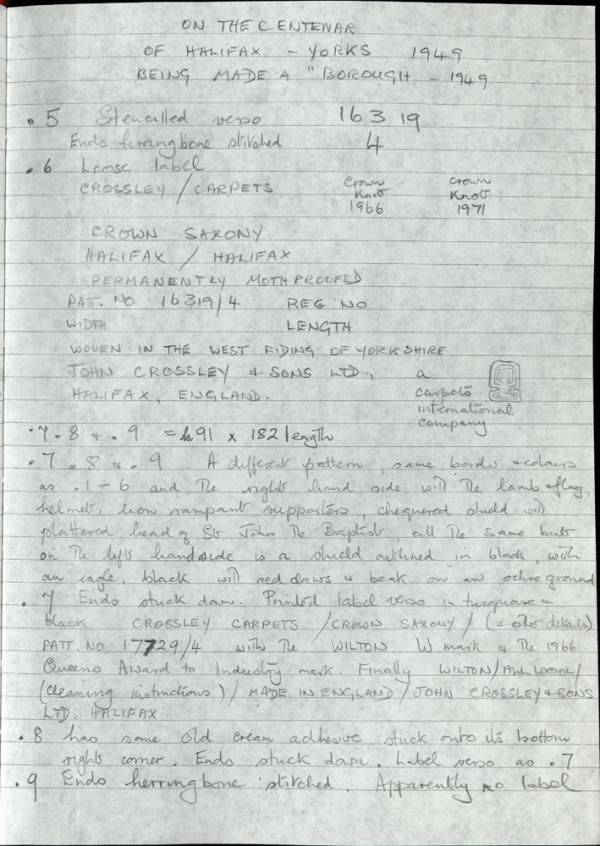 ON THE CENTENAR
OF HALIFAX - YORKS 1949
BEING MADE A "BOROUGH - 1949
.5 Stencilled verso 163 19
Ends herringbone stitched 4
.6 Loose label
CROSSLEY / CARPETS Crown Knot 1966 Crown Knot 1971
CROWN SAXONY
HALIFAX / HALIFAX
PERMANENTLY MOTHPROOFED
PATT. NO 16319/4 REG NO
WIDTH LENGTH
WOVEN IN THE WEST RIDING OF YORKSHIRE
JOHN CROSSLEY & SONS LTD., a
HALIFAX, ENGLAND. carpets
international
company
.7 .8 & .9 = 91 x 182 length
.7 .8 & .9 A different pattern, same border & colours
as .1-6 and the right hand side with the lamb & flag,
helmet, lion rampant supporters, chequered shield with
plattered head of St John the Baptist all the same but
on the left handside is a shield outlined in black, with
an eagle, black with red claws & beak on an ochre ground
.7 Ends stuck down. Printed label verso in turquoise &
black CROSSLEY CARPETS / CROWN SAXONY / (& other details)
PATT. NO 17729/4 with the WILTON W mark & the 1966
Queens Award to Industry mark. Finally WILTON/ALL WOOL/
(cleaning instructions) / MADE IN ENGLAND / JOHN CROSSLEY & SONS
LTD. HALIFAX
.8 has some old cream adhesive stuck onto its bottom
right corner. Ends stuck down. Label verso as .7
.9 Ends herringbone stitched. Apparently no label